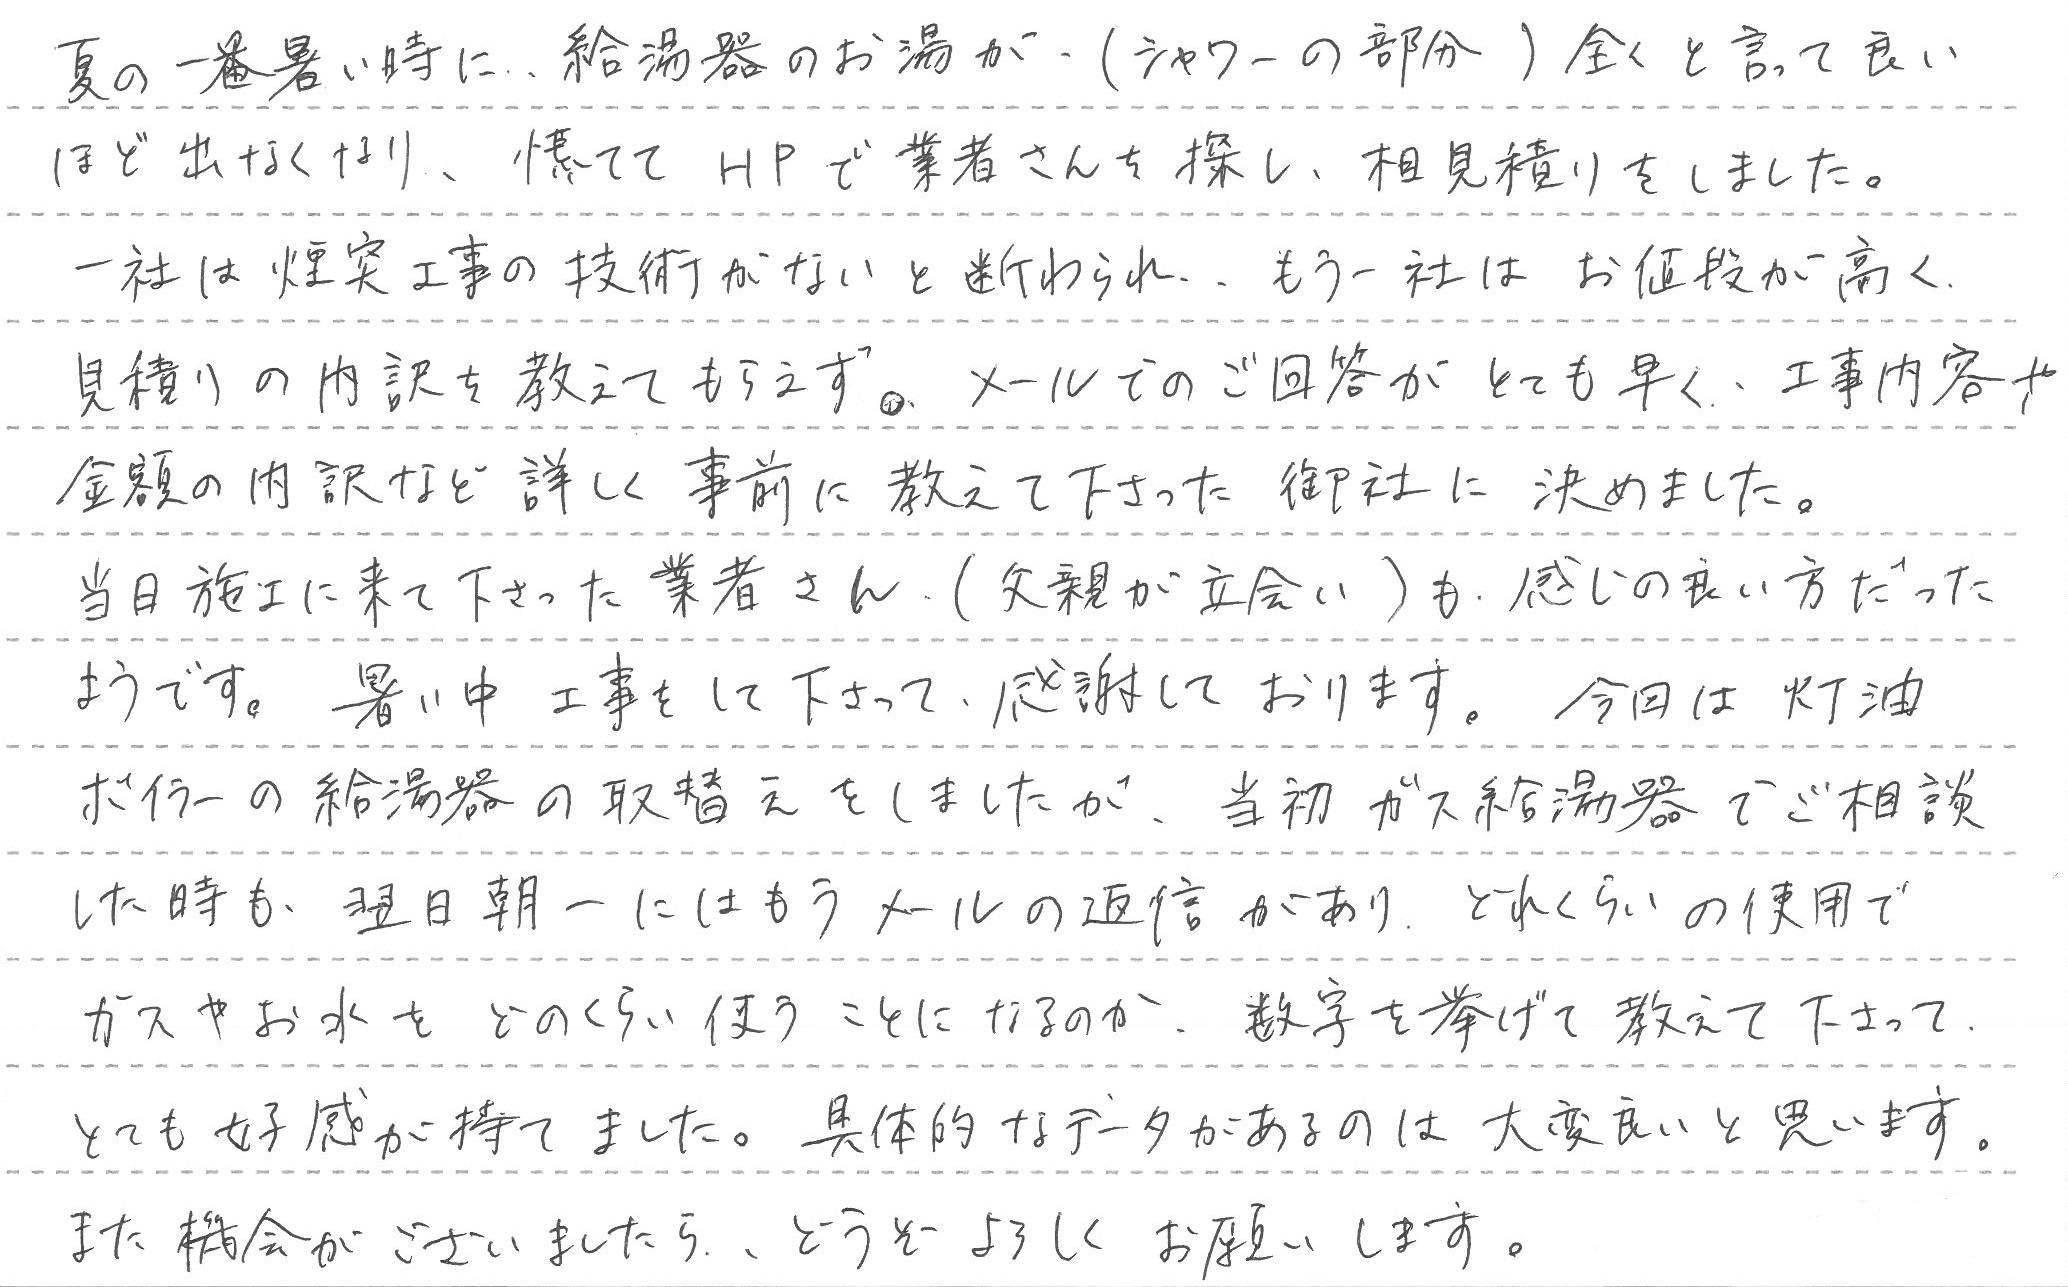 夏の一番暑い時に、給湯器のお湯が、(シャワーの部分)全くと言って良い
ほど出なくなり、慌ててHPで業者さんを探し、相見積りをしました。
一社は煙突工事の技術がないと断わられ、、もう一社はお値段が高く、
見積りの内訳を教えてもらえず。メールでのご回答がとても早く、工事内容や
金額の内訳など詳しく事前に教えて下さった御社に決めました。
当日施工に来て下さった業者さん、(父親が立会い)も、感じの良い方だった
ようです。暑い中工事をして下さって、感謝しております。今回は灯油
ボイラーの給湯器の取替えをしましたが、当初ガス給湯器でご相談
した時も、翌日朝一にはもうメールの返信があり、どれくらいの使用で
ガスやお水をどのくらい使うことになるのか、数字を挙げて教えて下さって、
とても好感が持てました。具体的なデータがあるのは大変良いと思います。
また機会がございましたら、、どうぞよろしくお願いします。